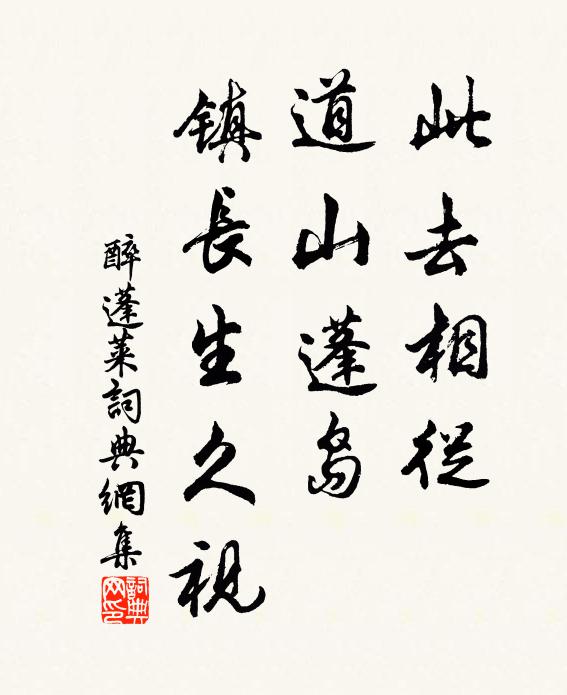 此去相從
道山蓬島
鎮長生久視
醉蓬萊詞典網集
詞典
网印